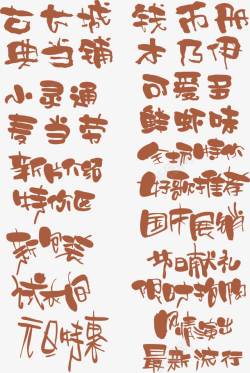 古长城
典当铺
小灵通
麦当劳
新片介绍
特价区
新闻奖
试衣间
元旦特惠
钱币册
木乃伊
可爱多
鲜虾味
全场特价
好歌推荐
国庆展销
节日献礼
限时抢购
风情演出
最新流行